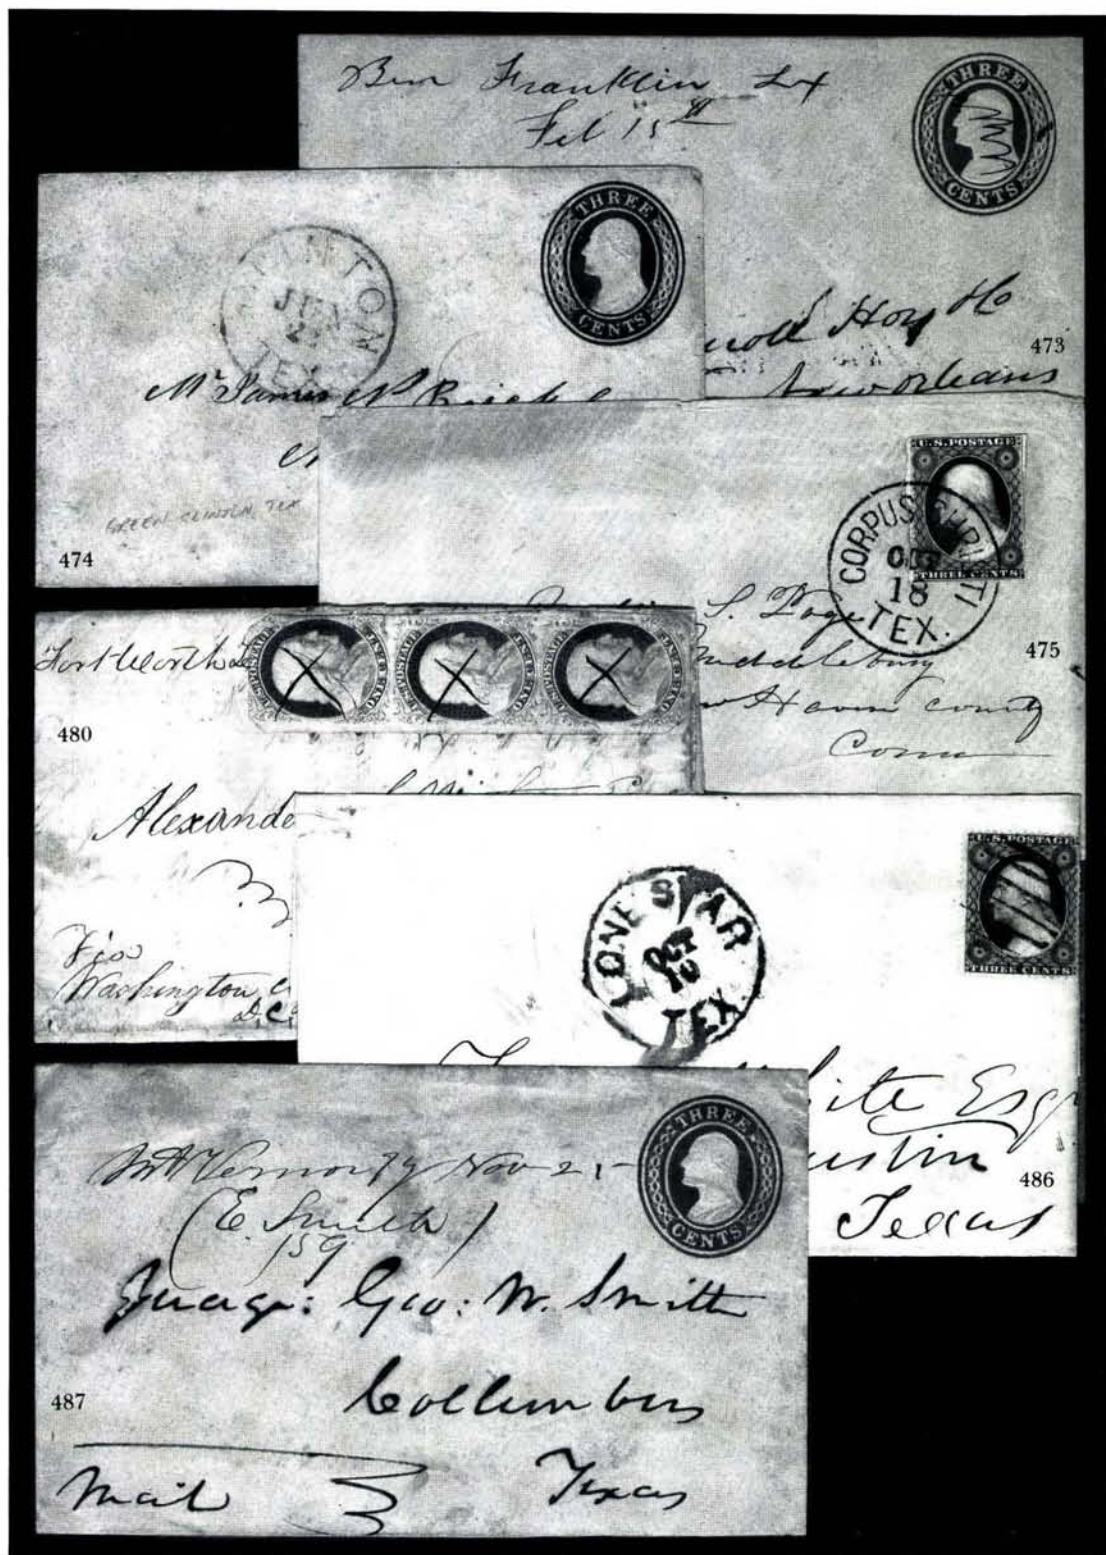 Ben Franklin Tx
Feb 15th
THREE
CENTS
Hoy & Co
New Orleans
473
THREE
CENTS
TANTON
JUN
TEX
Mr James N
GREEN CLINTON, TEX
474
U.S. POSTAGE
THREE CENTS
CORPUS CHRISTI
OCT
18
TEX.
S.
Middlebury
Haven county
Conn
475
Fort Worth
U.S. POSTAGE
U.S. POSTAGE
U.S. POSTAGE
480
Alexande
Via
Washington
D.C.
U.S. POSTAGE
THREE CENTS
LONE STAR
OCT
10
TEX.
ite Esqr
ustin
Texas
486
THREE
CENTS
Mt Vernon Nov 25
(E. Smith)
159
Judge: Geo: W. Smith
Collumbus
Texas
Mail
487